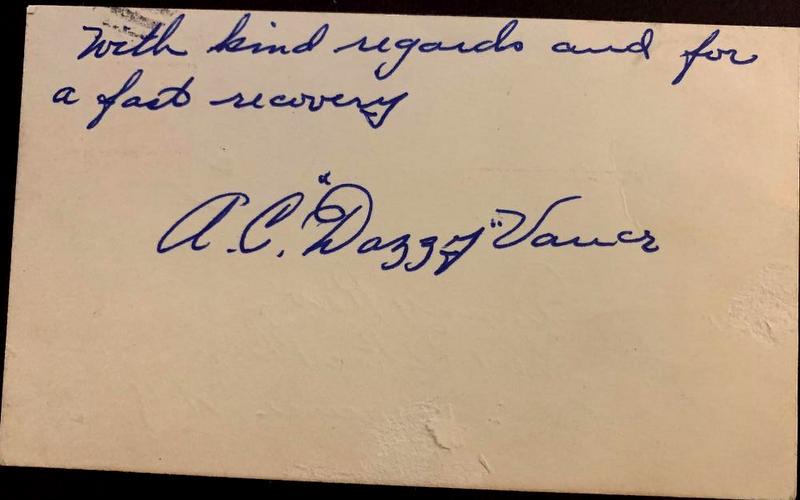 With kind regards and for
a fast recovery
A.C. "Dazzy" Vance